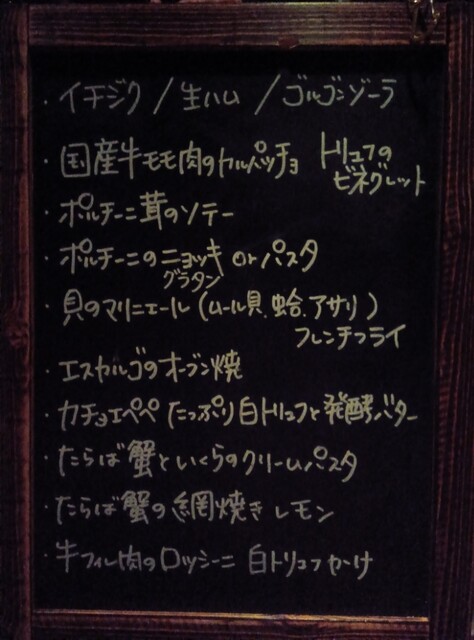 ・イチジク / 生ハム / ゴルゴンゾーラ
・国産牛モモ肉のカルパッチョ トリュフの
ビネグレット
・ポルチーニ茸のソテー
・ポルチーニのニョッキ or パスタ
グラタン
・貝のマリニエール (ムール貝、蛤、アサリ)
フレンチフライ
・エスカルゴのオーブン焼
・カチョエペペ たっぷり白トリュフと発酵バター
・たらば蟹といくらのクリームパスタ
・たらば蟹の網焼き レモン
・牛フィレ肉のロッシーニ 白トリュフかけ